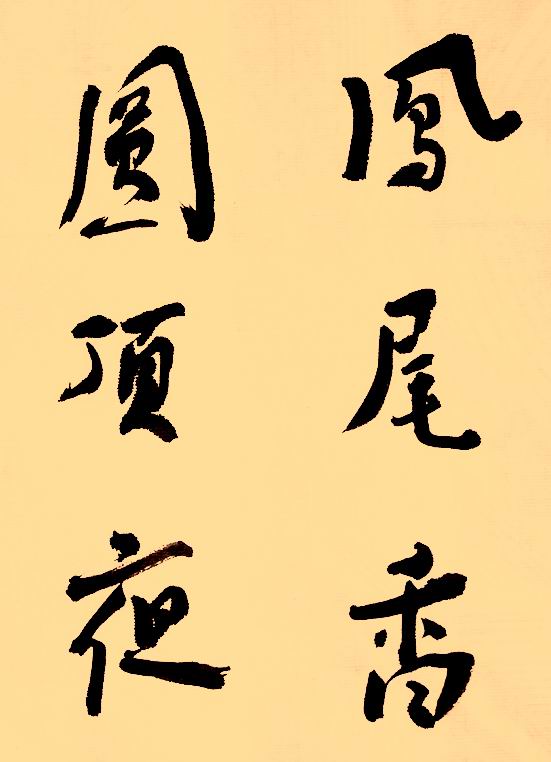 鳳尾香
圓頂夜